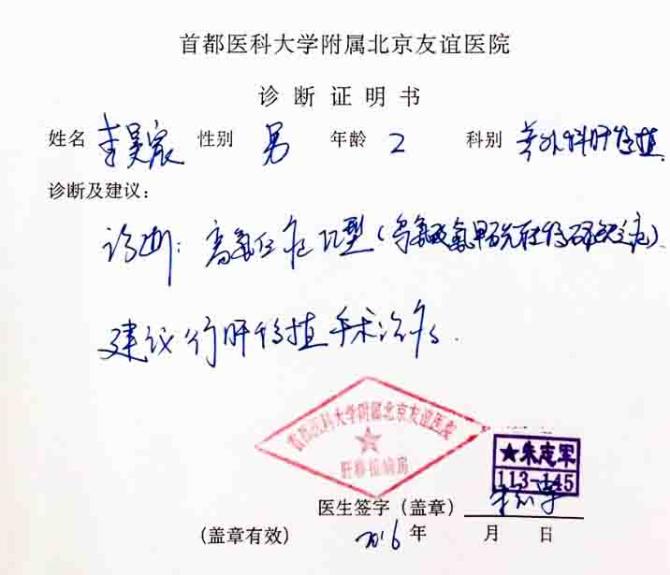 首都医科大学附属北京友谊医院
诊断证明书
姓名 李昊宸 性别 男 年龄 2 科别 普外科肝移植
诊断及建议：
诊断：高氨血症Ⅱ型（鸟氨酸氨甲酰转移酶缺乏症）
建议行肝移植手术治疗.
首都医科大学附属北京友谊医院
肝移植病房
★朱志军
113-145
医生签字（盖章）朱志军
（盖章有效） 2016年 月 日